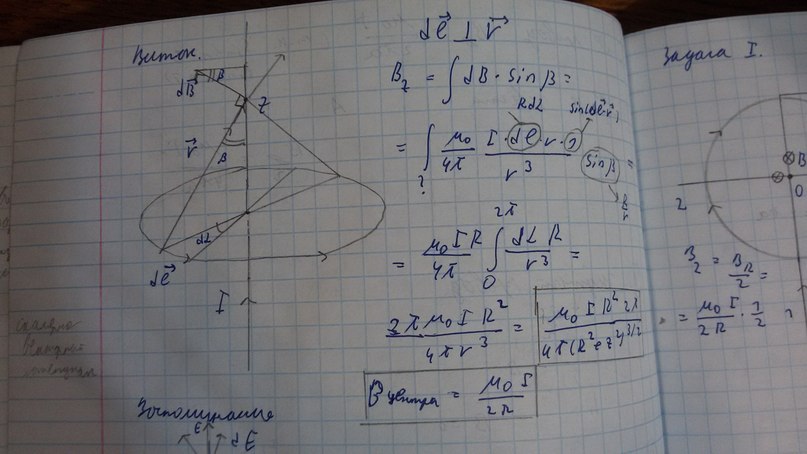 Виток.
dB⃗
β
z
r⃗
β
dα
dl⃗
I
dl⃗ ⊥ r⃗
B_z = ∫ dB · sin β =
Rdα
sin(dl⃗ r⃗)
= ∫_? μ₀/4π I · dl · r · 1 / r³ sin β =
R/r
= μ₀ I R / 4π ∫₀^2π dα R / r³ =
2π μ₀ I R² / 4π r³ = μ₀ I R² 2π / 4π (R² + z²)^3/2
B центра = μ₀ I / 2R
Воспоминание
E dE⃗
Задача 1.
B
O
2
B₂ = B_R / 2 =
= μ₀ I / 2R · 1/2